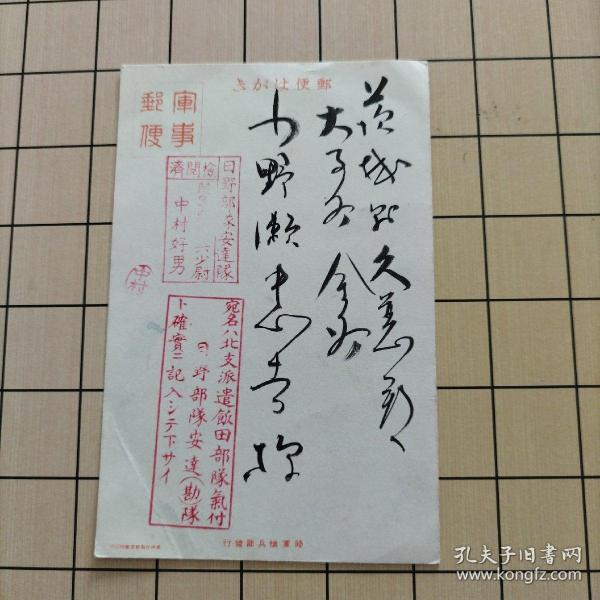 郵便はがき
軍事
郵便
茨城縣久慈郡
大子町
小野瀬忠壽様
日野部隊安達隊
檢閲濟
少尉
中村好男
中村
宛名ハ北支派遣飯田部隊氣付
日野部隊安達(勘)隊
ト確實ニ記入シテ下サイ
陸軍恤兵部發行
孔夫子旧书网
www.kongfz.com